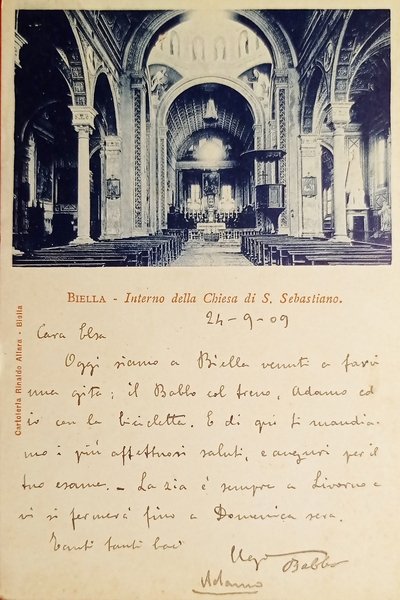 BIELLA - Interno della Chiesa di S. Sebastiano.
24-9-09
Cartoleria Rinaldo Allara - Biella
Cara Elsa
Oggi siamo a Biella venuti a farvi
una gita; il Babbo col treno, Adamo ed
io con la bicicletta. E di qui ti mandia-
mo i più affettuosi saluti, e auguri per il
tuo esame. - La zia è sempre a Livorno e
vi si fermerà fino a Domenica sera.
Tanti tanti baci
Ugo
Babbo
Adamo